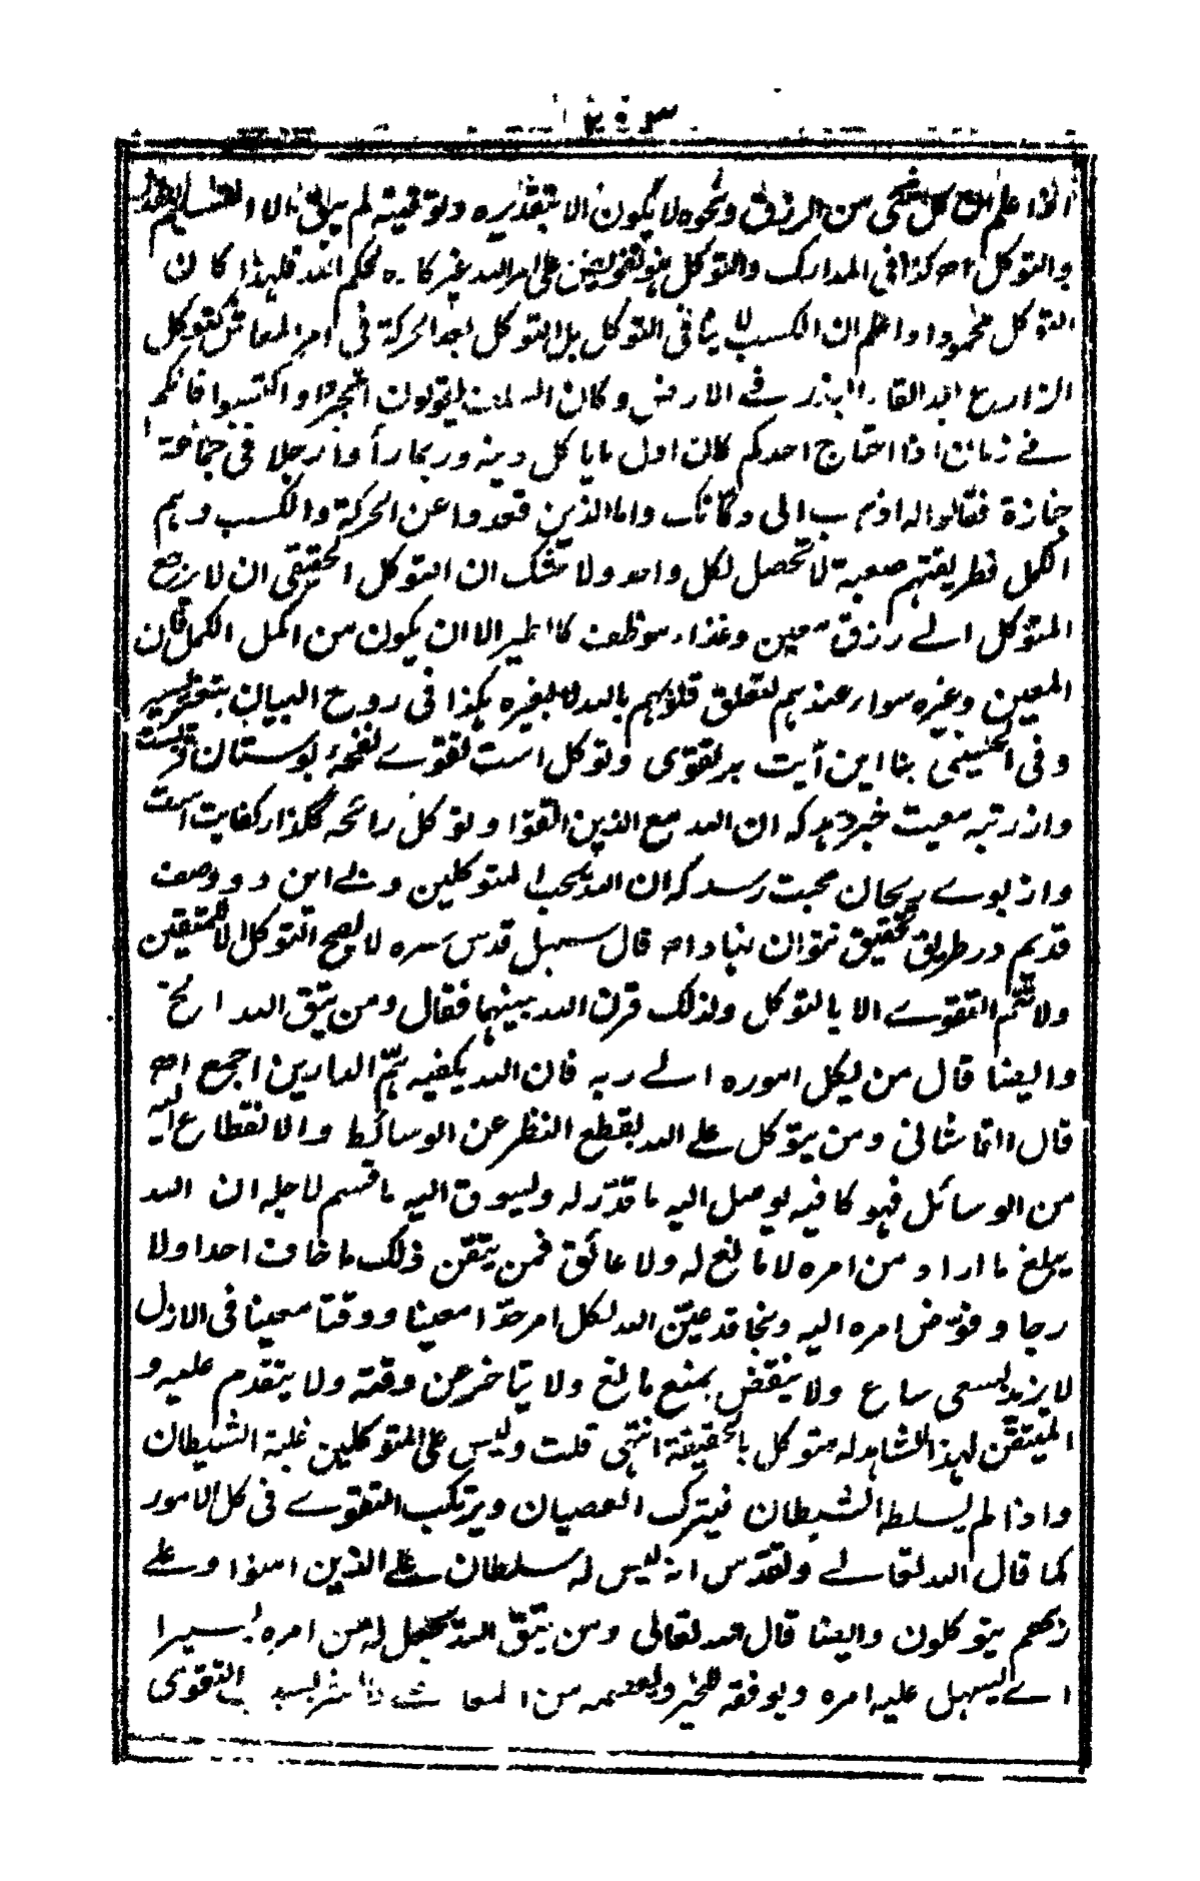 ٢٠٣
اذا علم ان كل شئ من الرزق ونحوه لا يكون الا بتقديره وتوقيته لم يبق الا التسليم للقدر
والتوكل اھ كذا فى المدارك والتوكل هو تفويض على امر الله غير كاره لحكم الله فلهذا كان
التوكل محمودا واعلم ان الكسب لا ينافى التوكل بل التوكل بعد الحركة فى امر المعاش كتوكل
الزارع بعد القاء البذر فے الارض وكان السلف يقولون اتجروا واكتسبوا فانكم
فے زمان اذا احتاج احدكم كان اول ما ياكل دينه وربما رأوا رجلا فى جماعة
جنازة فقالوا له اذهب الى دكانك واما الذين قعدوا عن الحركة والكسب وهم
الكمل فطريقتهم صعبة لا تحصل لكل واحد ولا شك ان التوكل الحقيقى ان لا يرجع
المتوكل الے رزق معين وغذاء موظف كالطير الا ان يكون من اكمل الكمل فان
المعين وغيره سواء عندهم لتعلق قلوبهم بالله لا بغيره هكذا فى روح البيان بتغير يسير
وفى الحسينى بنا اين آيت بر تقوى وتوكل است تقوے نفحۂ بوستان قربت
واز رتبه معيت خبر دهد كه ان الله مع الذين اتقوا وتوكل رائحه گلزار كفايت است
واز بوے ريحان محبت رسد كه ان الله يحب المتوكلين وبے اين دو وصف
قدم در طريق تحقيق نتوان بنهاد اھ قال سهل قدس سره لا يصح التوكل الا للمتقين
ولا تتم التقوے الا بالتوكل ولذلك قرن الله بينهما فقال ومن يتق الله الخ
وايضا قال من يكل اموره الے ربه فان الله يكفيه هم الدارين اجمع اھ
قال القاشانى ومن يتوكل علے الله بقطع النظر عن الوسائط والانقطاع اليه
من الوسائل فهو كافيه يوصل اليه ما قدّر له ويسوق اليه ما قسم لاجله ان الله
يبلغ ما اراد من امره لا مانع له ولا عائق فمن يتقن ذلك ما خاف احدا ولا
رجا وفوّض امره اليه ونجا قد عيّن الله لكل امر حدّا معينا ووقتا معينا فى الازل
لا يزيد بسعى ساع ولا ينقض بمنع مانع ولا يتاخر عن وقته ولا يتقدم عليه و
المتيقّن لهذا الشاهد له متوكل بالحقيقة انتهى قلت وليس على المتوكلين غلبة الشيطان
واذا لم يسلط الشيطان فيترك العصيان ويرتكب التقوے فى كل الامور
كما قال الله تعالے وتقدّس انه ليس له سلطان علے الذين امنوا وعلے
ربهم يتوكلون وايضا قال الله تعالى ومن يتق الله يجعل له من امره يسيرا
اے يسهل عليه امره ويوفقه للخير ويعصمه من المعا التقوى